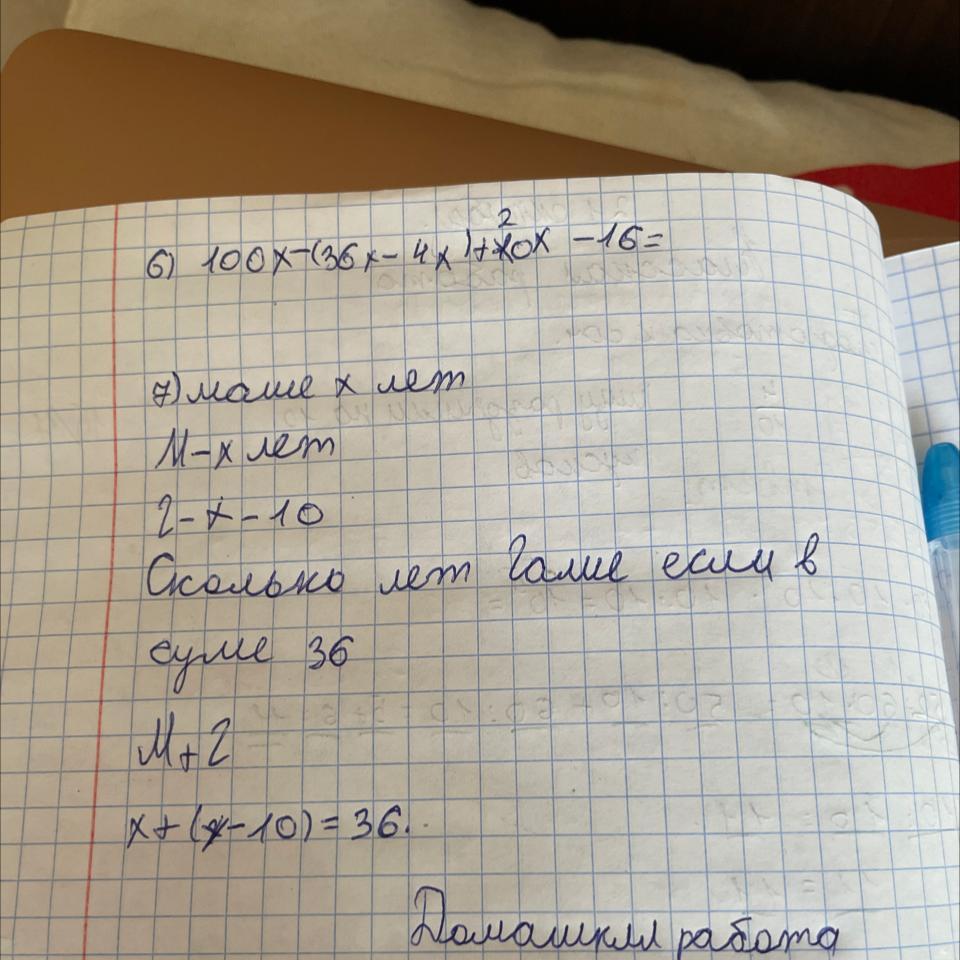 6) 100x-(36x-4x)+20x-16=
7) маше x лет
М-x лет
Г-x-10
Сколько лет Гале если в
суме 36
М+Г
x+(x-10)=36.
Домашкля работа